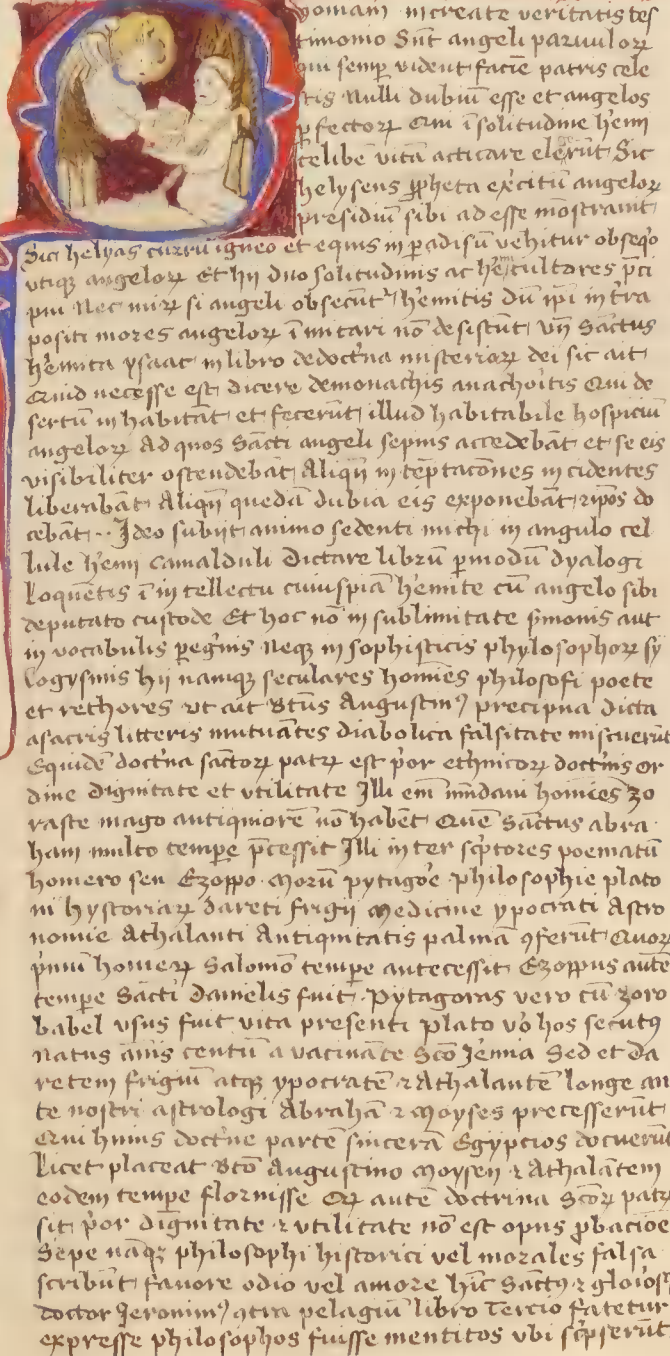 Quoniam increate veritatis tes
timonio Sūt angeli paruulorꝝ
qui semꝑ vident faciē patris cele
stis Nulli dubiū esse et angelos
ꝑfectorꝝ Qui ī solitudine h'emi
celibē vitā acticare elegerūt Sic
helyseus ꝓpheta exercitū angelorꝝ
presidiū sibi ad esse mōstrauit
Sic helyas currū igneo et equis in paradisū vehitur obseqo
vtiqꝫ angelorꝝ Et hii duo solitudinis ac h'emi cultores p̄ci
pui Nec mirꝝ si angeli obsecūt' h'emitis dū ip̄i in t'ra
positi mores angelorꝝ īmitari nō desistūt vn̄ Sāctus
h'emita ysaac in libro de doct'na misteriorꝝ dei sic ait
Quid necesse est dicere de monachis anachoitis Qui de
sertū inhabitāt et fecerūt illud habitabile hospiciū
angelorꝝ Ad quos Sācti angeli sepius accedebāt et se eis
visibiliter ostendebāt Aliqn̄ in tēptacōnes incidentes
liberabāt Aliqn̄ quedā dubia eis exponebāt ⁊ ip̄os do
cebāt Ideo subijt animo sedenti michi in angulo cel
lule h'emi Camalduli Dictare librū ꝑ modū dyalogi
loquētis ī intellectu cuiuspiā h'emite cū angelo sibi
deputato custode Et hoc nō in sublimitate s'monis aut
in vocabulis ꝑeg'nis Neqꝫ in sophisticis phylosophorꝝ sy
logysmis hij namqꝫ seculares homīes philosofi poete
et rethores vt ait Btūs Augustinꝯ precipua dicta
a sacris litteris mutuātes diabolica falsitate miscuerūt
Equidē doct'na sāctorꝝ patrꝝ est p'or ethnicorꝝ doct'nis or
dine dignitate et vtilitate Illi em̄ mūdani homīes zo
raste mago antiquiorē nō habēt Quē Sāctus abra
ham multo tempe p̄cessit Illi inter sc'ptores poematū
homero seu Ezoppo Morū pytagore philosophie plato
ni hystoriarꝝ dareti frigij Medicine ypocrati Astro
nomie Athalanti Antiquitatis palmā ꝯferūt Quorꝝ
p'mū homerꝝ Salomō tempe antecessit Ezoppus autē
tempe Sācti danielis fuit Pytagoras vero cū zoro
babel vsus fuit vita presenti plato v'o hos secutꝯ
natus ānis centū a vacināte Scō Jeremia Sed et da
retem frigiū atqꝫ ypocratē ⁊ Athalantē longe an
te nostri astrologi Abrahā ⁊ Moyses precesserūt
Qui huius doct'ne partē sincerā Egypcios docuerūt
Licet placeat Btō Augustino Moysen ⁊ Athalātem
eodem tempe floruisse Qꝝ autē doctrina Scōrꝝ patrꝝ
sit p'or dignitate ⁊ vtilitate nō est opus ꝓbacioē
Sepe nāqꝫ philosophi historici vel morales falsa
scribūt fauore odio vel amore hīc Sāctꝯ ⁊ gloiosꝯ
doctor Jeronimꝯ ꝯtra pelagiū libro Tercio fatetur
expresse philosophos fuisse mentitos vbi sc'pserūt